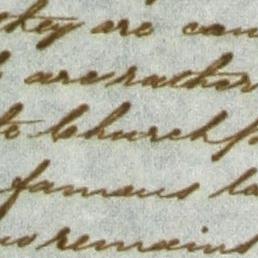 they are can
are rather
to Church
famous la
remains